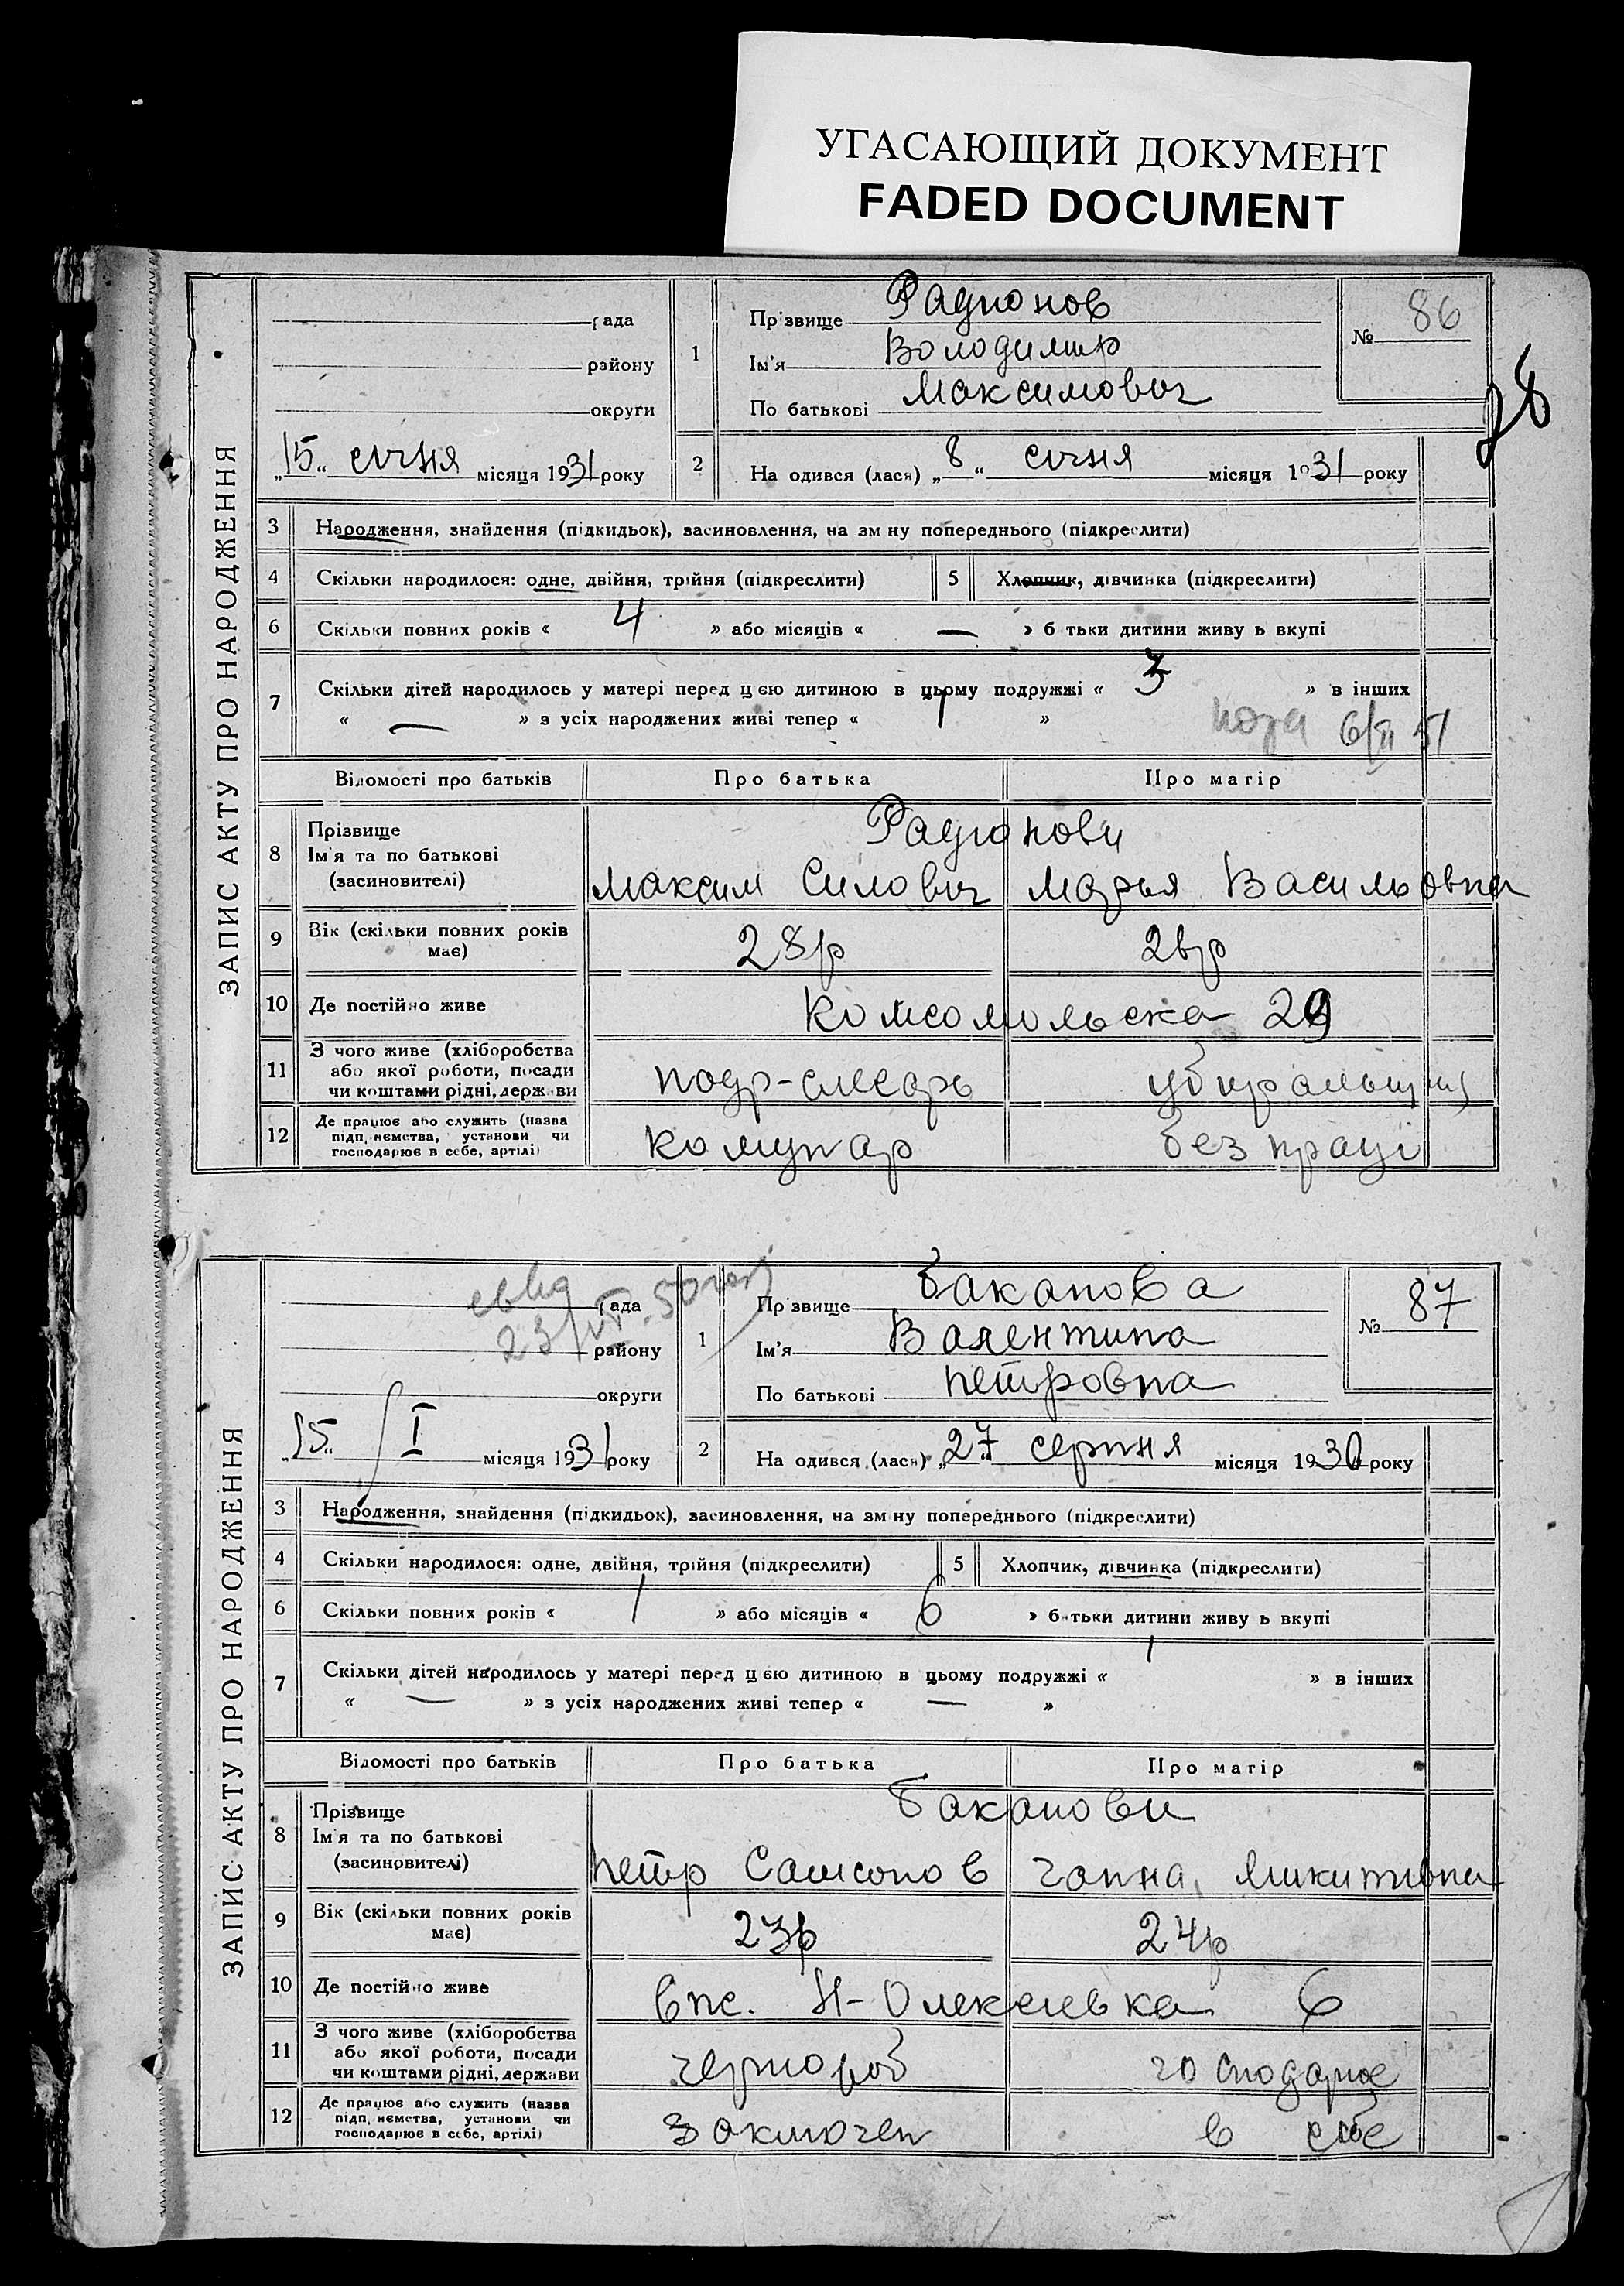 УГАСАЮЩИЙ ДОКУМЕНТ
FADED DOCUMENT
28
ЗАПИС АКТУ ПРО НАРОДЖЕННЯ
рада
району
округи
„15“ січня місяця 1931 року
1
Прізвище Радионов
Ім'я Володимир
По батькові Максимович
№ 86
2
На одився (лася) „8“ січня місяця 1931 року
3 Народження, знайдення (підкидьок), засиновлення, на зм ну попереднього (підкреслити)
4 Скільки народилося: одне, двійня, трійня (підкреслити)
5 Хлопчик, дівчинка (підкреслити)
6 Скільки повних років « 4 » або місяців « — » б тьки дитини живу ь вкупі
7 Скільки дітей народилось у матері перед ц єю дитиною в цьому подружжі « 3 » в інших
« — » з усіх народжених живі тепер « 1 »
6/II 51
Відомості про батьків Про батька Про матір
8 Прізвище
Ім'я та по батькові
(засиновителі)
Радионови
Максим Силович Марья Васильовна
9 Вік (скільки повних років
має)
28р 26р
10 Де постійно живе Комсомольска 29
11 З чого живе (хліборобства
або якої роботи, посади
чи коштами рідні, держави
подр-слесарь убиральщиц
12 Де працює або служить (назва
підп, немства, установи чи
господарює в себе, артілі)
комунар без праці
ЗАПИС АКТУ ПРО НАРОДЖЕННЯ
рада
району
округи
„15“ I місяця 1931 року
1
Пр звище Баканова
Ім'я Валентина
По батькові Петровна
№ 87
2
На одився (лася) „27“ серпня місяця 1930 року
3 Народження, знайдення (підкидьок), засиновлення, на зм ну попереднього (підкреслити)
4 Скільки народилося: одне, двійня, трійня (підкреслити)
5 Хлопчик, дівчинка (підкреслити)
6 Скільки повних років « 1 » або місяців « 6 » б тьки дитини живу ь вкупі
7 Скільки дітей народилось у матері перед ц єю дитиною в цьому подружжі « 1 » в інших
« — » з усіх народжених живі тепер « — »
Відомості про батьків Про батька Про матір
8 Прізвище
Ім'я та по батькові
(засиновителі)
Баканови
Петр Самсонов Ганна Микитивна
9 Вік (скільки повних років
має)
23р 24р
10 Де постійно живе впс. Н-Олексеевка 6
11 З чого живе (хліборобства
або якої роботи, посади
чи коштами рідні, держави
чернороб господарює
12 Де працює або служить (назва
підп, немства, установи чи
господарює в себе, артілі)
заключен в себе